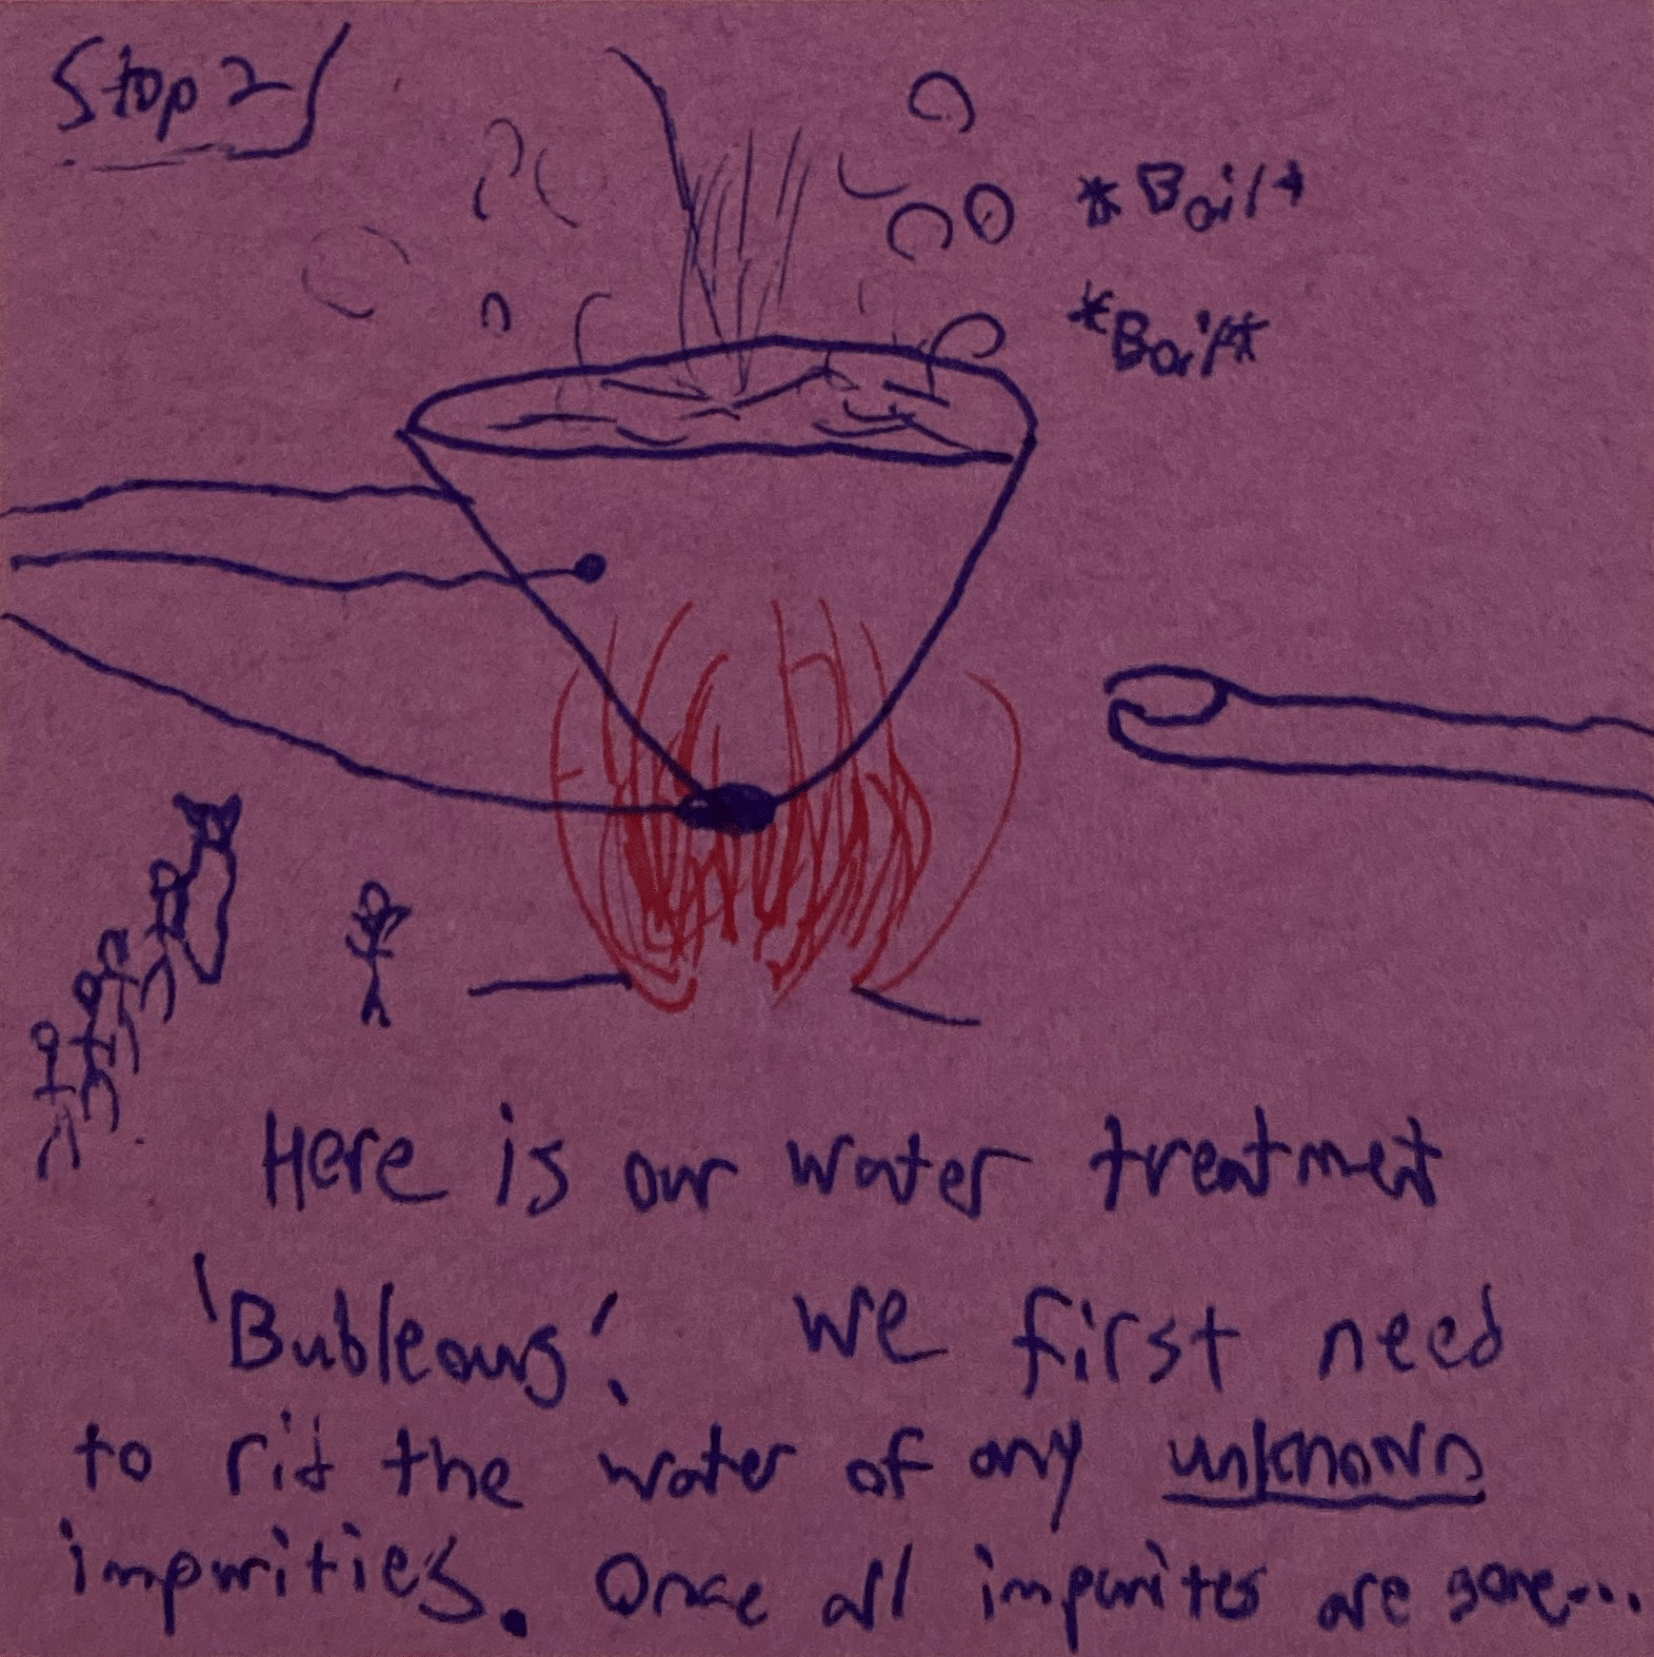 Stop 2
*Boil*
*Boil*
Here is our water treatmet
'Bubleous'. We first need
to rid the water of any unknown
impurities. Once all impurites are gone...